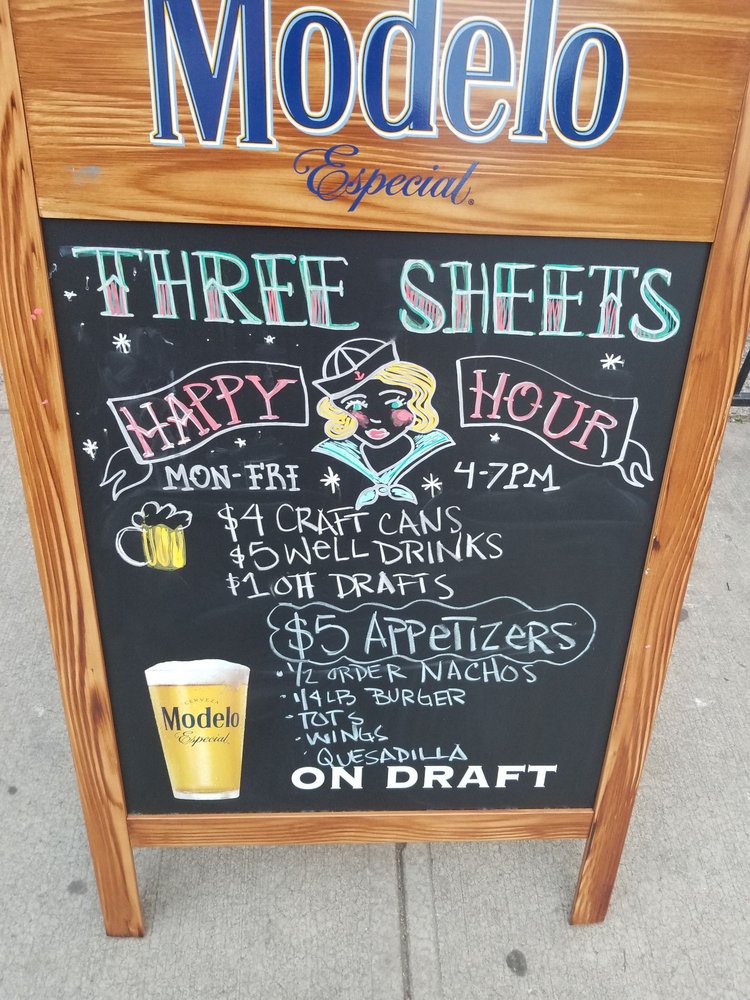 Modelo
Especial®
THREE SHEETS
HAPPY HOUR
MON-FRI 4-7PM
$4 CRAFT CANS
$5 WELL DRINKS
$1 OFF DRAFTS
$5 APPETIZERS
· 1/2 ORDER NACHOS
· 1/4 LB BURGER
· TOTS
· WINGS
· QUESADILLA
CERVEZA
Modelo
Especial
ON DRAFT